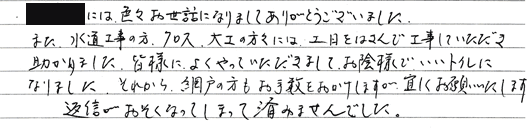 には、色々お世話になりましてありがとうございました。
また、水道工事の方、クロス、大工の方々には、工日をはさんで工事していただき
助かりました。皆様に、よくやっていただきまして、お陰様で、いいトイレに
なりました。それから、網戸の方もお手数をおかけしますが、宜しくお願いいたします
返信がおそくなってしまって済みませんでした。